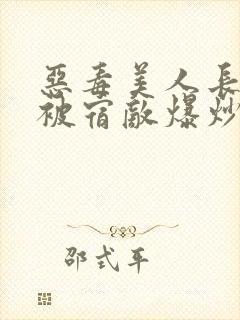 惡毒美人長
被宿敵爆炒
邵式平